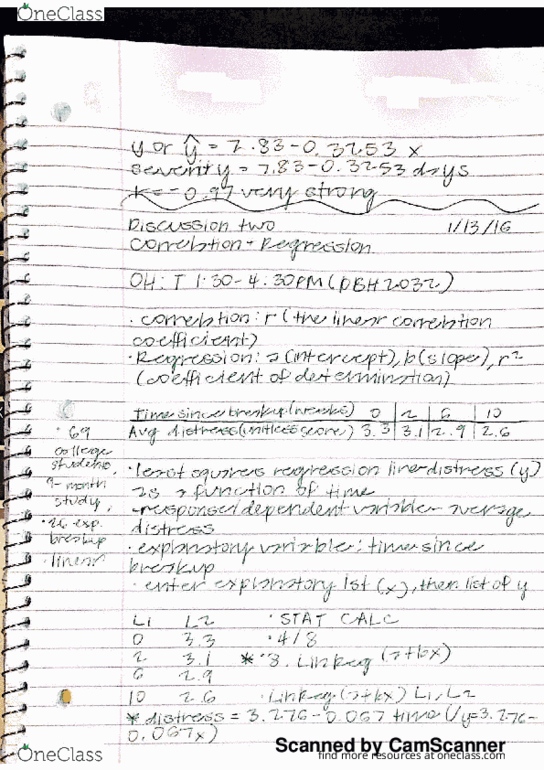 OneClass
y or ŷ = 7.83-0.3253 x
severity = 7.83-0.3253 days
r=-0.97 very strong
Discussion two 1/13/16
Correlation + Regression
OH: T 1:30-4:30PM (DBH 2032)
· correlation: r (the linear correlation
coefficient)
· Regression: a (intercept), b (slope), r²
(coefficient of determination)
Time since breakup (weeks) 0 2 6 10
Avg distress (unitless score) 3.3 3.1 2.9 2.6
· 69
college
students,
9-month
study,
· 26 exp.
breakup
· linear
· least squares regression line distress (y)
as a function of time
-response/dependent variable: average
distress
· explanatory variable: time since
breakup
· enter explanatory list (x), then list of y
L1 L2 · STAT CALC
0 3.3 · 4/8
2 3.1 * · 8. LinReg (a+bx)
6 2.9
10 2.6 · LinReg (a+bx) L1, L2
* distress = 3.276-0.067 time (/y=3.276-
0.067x)
Scanned by CamScanner
OneClass
find more resources at oneclass.com